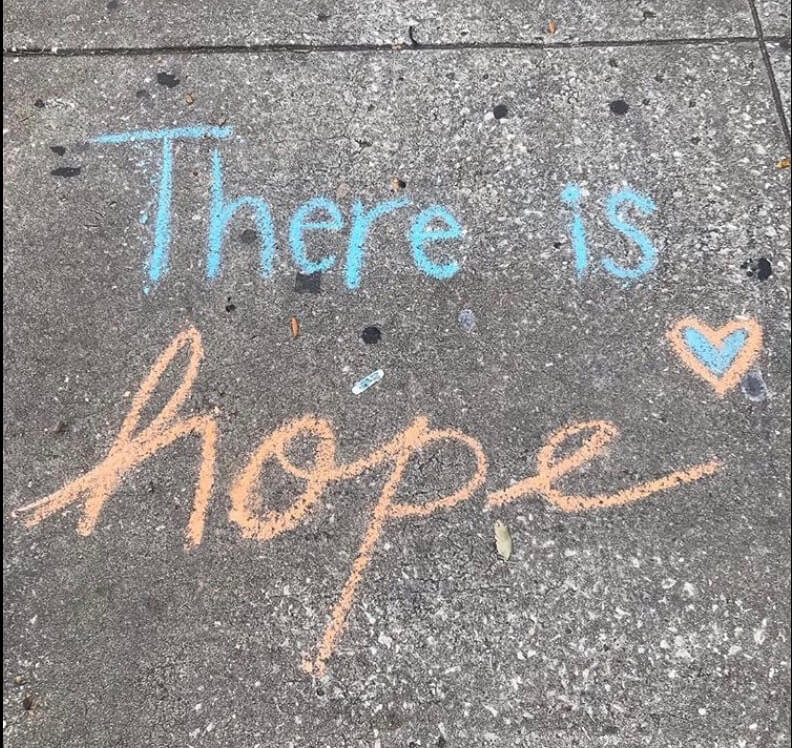 There is
hope